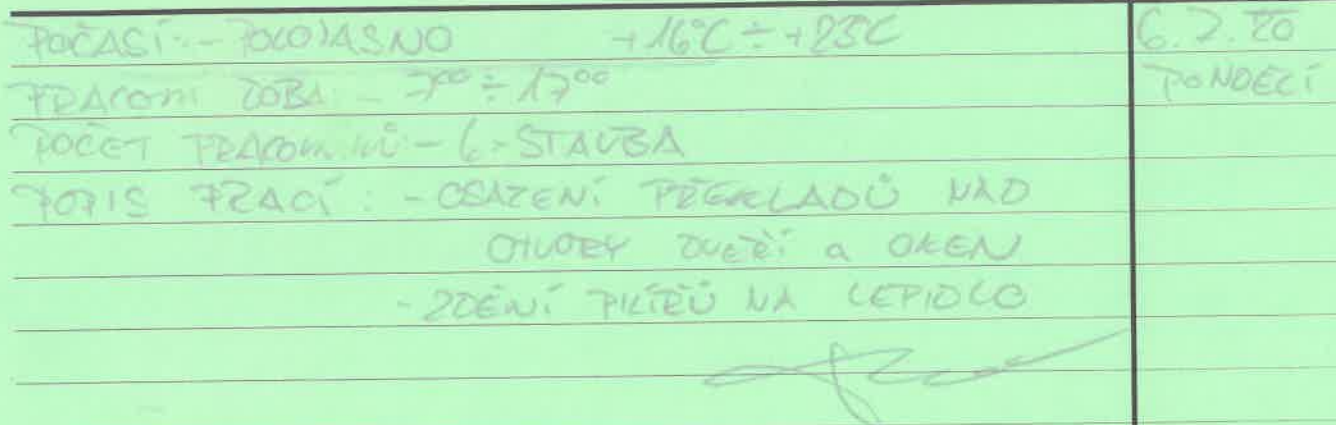 POČASÍ: - POLOJASNO +16°C ÷ +23C 6. 7. 20
PRACOVNÍ DOBA - 7⁰⁰ ÷ 17⁰⁰ PONDĚLÍ
POČET PRACOVNÍKŮ - 6 - STAVBA
POPIS PRACÍ: - OSAZENÍ PŘEKLADŮ NAD
OTVORY DVEŘÍ a OKEN
- ZDĚNÍ PILÍŘŮ NA LEPIDLO